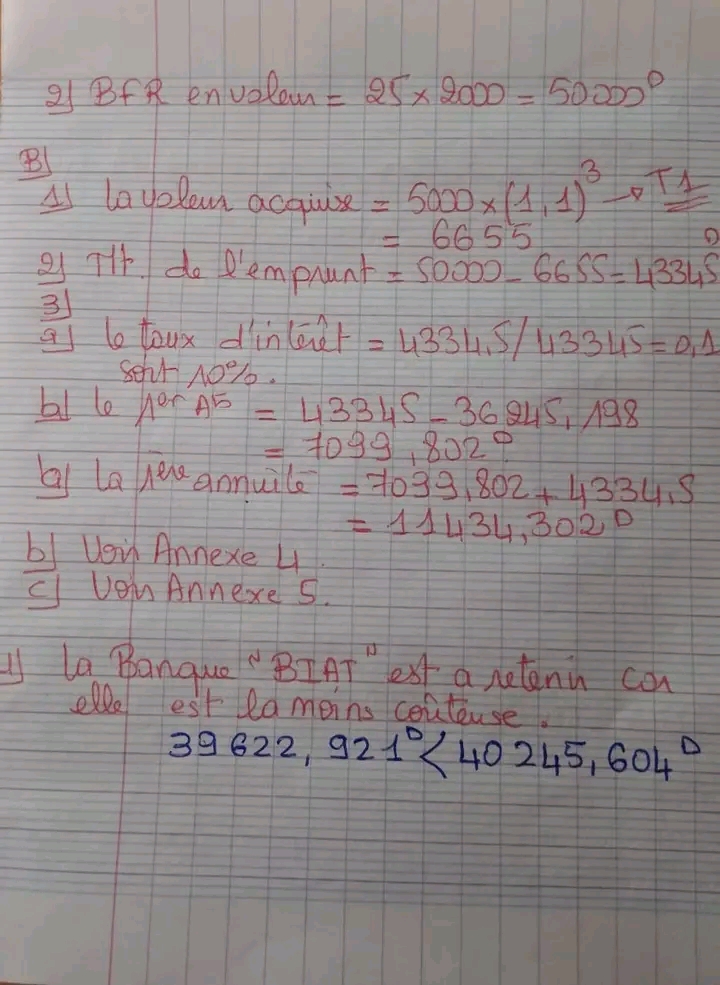 2) BFR en valeur = 25 × 2000 = 50 000ᴰ
B)
1) la valeur acquise = 5000 × (1,1)³ → T1
= 6655
2) Mt. de l'emprunt = 50000 - 6655 = 43345ᴰ
3)
a) le taux d'intérêt = 4334,5 / 43345 = 0,1
soit 10%.
b) le 1er A5 = 43345 - 36245,198
= 7099,802ᴰ
b) la 1ère annuité = 7099,802 + 4334,5
= 11434,302ᴰ
b) Voir Annexe 4.
c) Voir Annexe 5.
1) la Banque "BIAT" est a retenir car
elle est la moins coûteuse.
39 622,921ᴰ < 40 245,604ᴰ